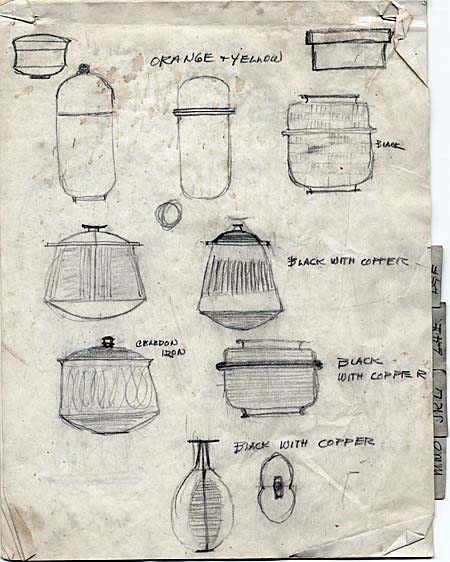 ORANGE + YELLOW
BLACK
BLACK WITH COPPER
CELEDON
IRON
BLACK
WITH COPPER
BLACK WITH COPPER
MNO JKL